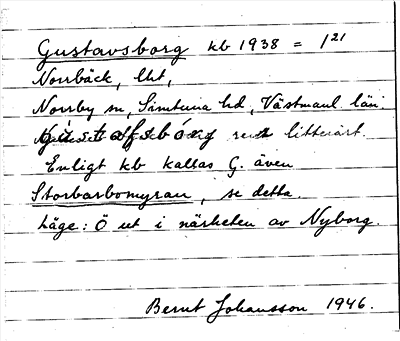 Gustavsborg kb 1938 = 1²¹
Norrbäck, lht,
Norrby sn, Simtuna hd, Västmanl. län.
gústafsbór̀g rent litterärt.
Enligt kb kallas G. även
Storbarbomyran, se detta.
Läge: Ö ut i närheten av Nyborg.
Bernt Johansson 1946.